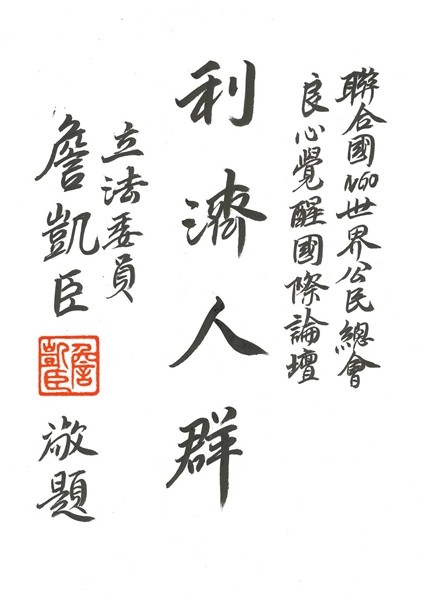 聯合國NGO世界公民總會
良心覺醒國際論壇
利濟人群
立法委員
詹凱臣
詹凱臣
敬題